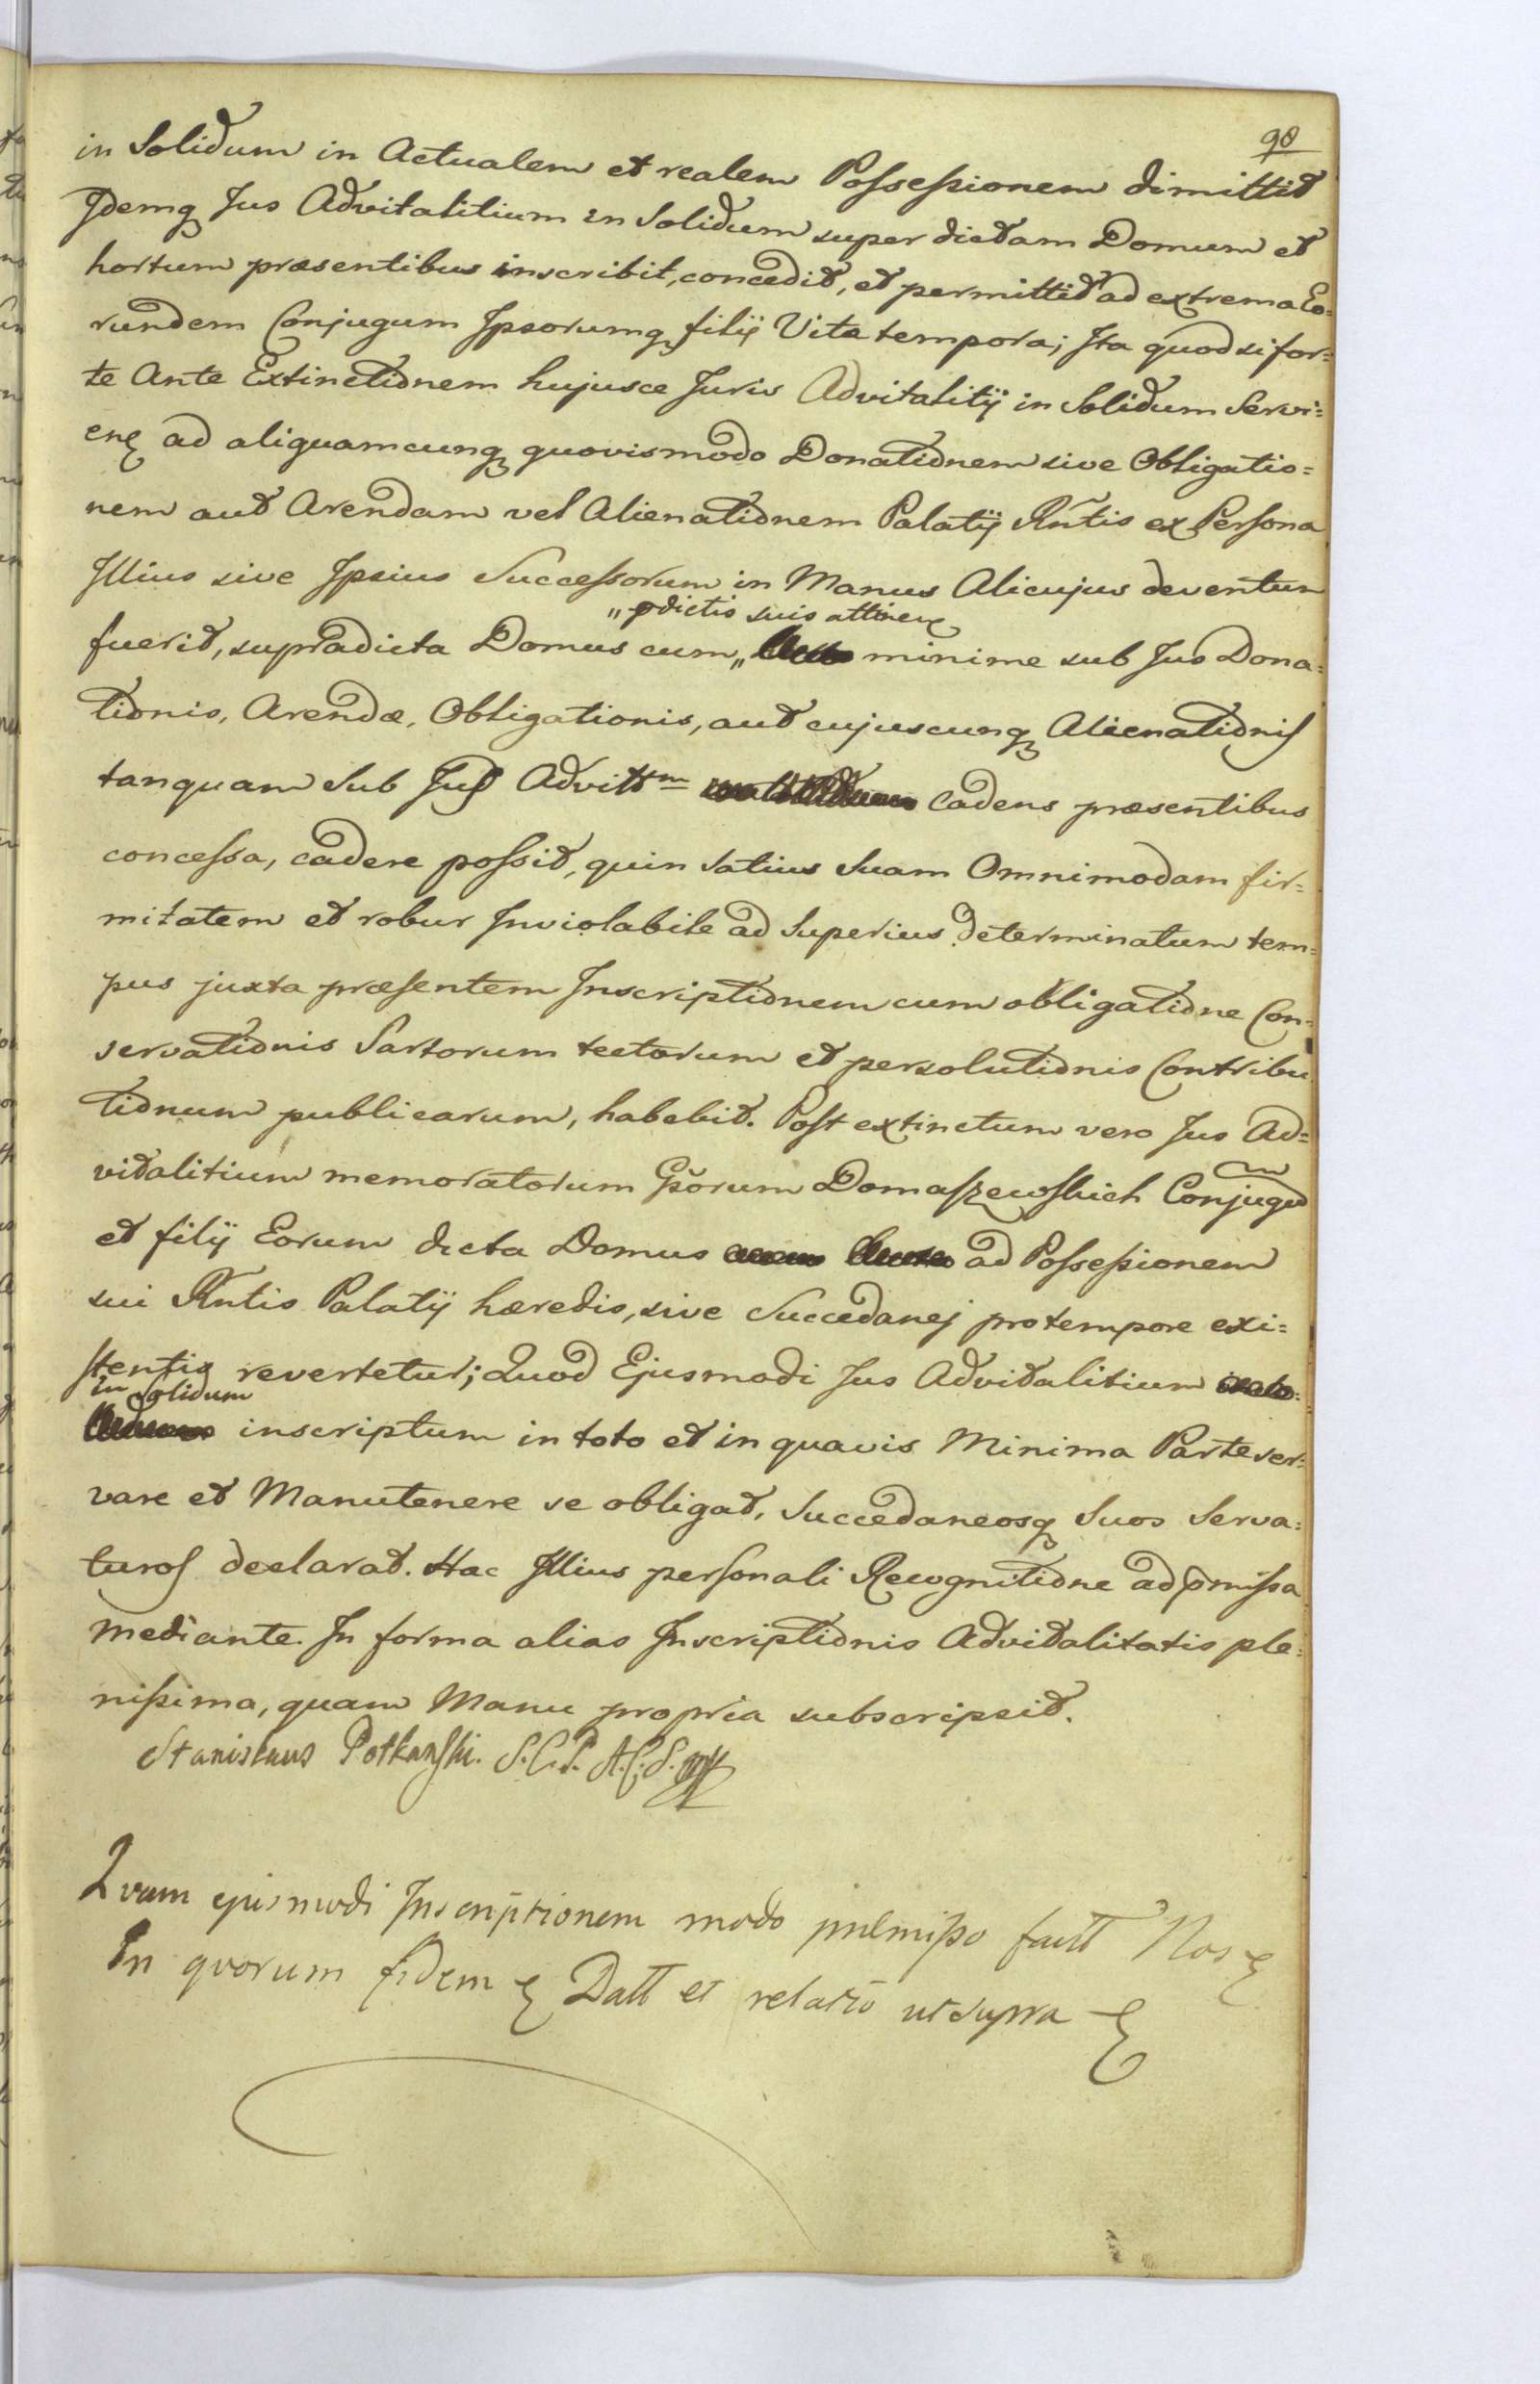 98
in Solidum in Actualem et realem Possessionem dimittit
Idemq Jus Advitalitium in Solidum super dictam Domum et
hortum præsentibus inscribit, concedit, et permittit ad extrema Eo=
rundem Conjugum Ipsorumq filij Vitæ tempora; Ita quod si for=
te Ante Extinctionem hujusce Juris Advitalitij in Solidum Servi=
ens ad aliquamcunq quovismodo Donationem sive Obligatio=
nem aut Arendam vel Alienationem Palatij Rñtis ex Persona
Illius sive Ipsius Successorum in Manus Alicujus deventum
„pdictis suis attinen
fuerit, supradicta Domus cum„ minime sub Jus Dona=
tionis, Arendæ, Obligationis, aut cujuscunq Alienationis
tanquam Sub Jus Advittm Cadens præsentibus
concessa, cadere possit, quin Satius Suam Omnimodam fir=
mitatem et robur Inviolabile ad Superius determinatum tem=
pus juxta præsentem Inscriptionem cum obligatione Con=
servationis Sartorum tectorum et persolutionis Contribu
tionum publicarum, habebit. Post extinctum vero Jus Ad=
vitalitium memoratorum Gsorum Domaszewskich Conjugum
et filij Eorum dicta Domus ad Possessionem
sui Rñtis Palatij hæredis, sive Succedanej pro tempore exi=
stentis revertetur; Quod Ejusmodi Jus Advitalitium
in Solidum
inscriptum in toto et in quavis Minima Parte ser=
vare et Manutenere se obligat, Succedaneosq Suos Serva=
turos declarat. Hac Illius personali Recognitione ad pmissa
mediante. In forma alias Inscriptionis Advitalitatis ple=
nissima, quam Manu propria subscripsit.
Stanislaus Potkanski. S.C.P. A.C.S. mp
Quam ejusmodi Inscriptionem modo pnlmisso factt Nos
In quorum fidem Datt et relatio ut supra